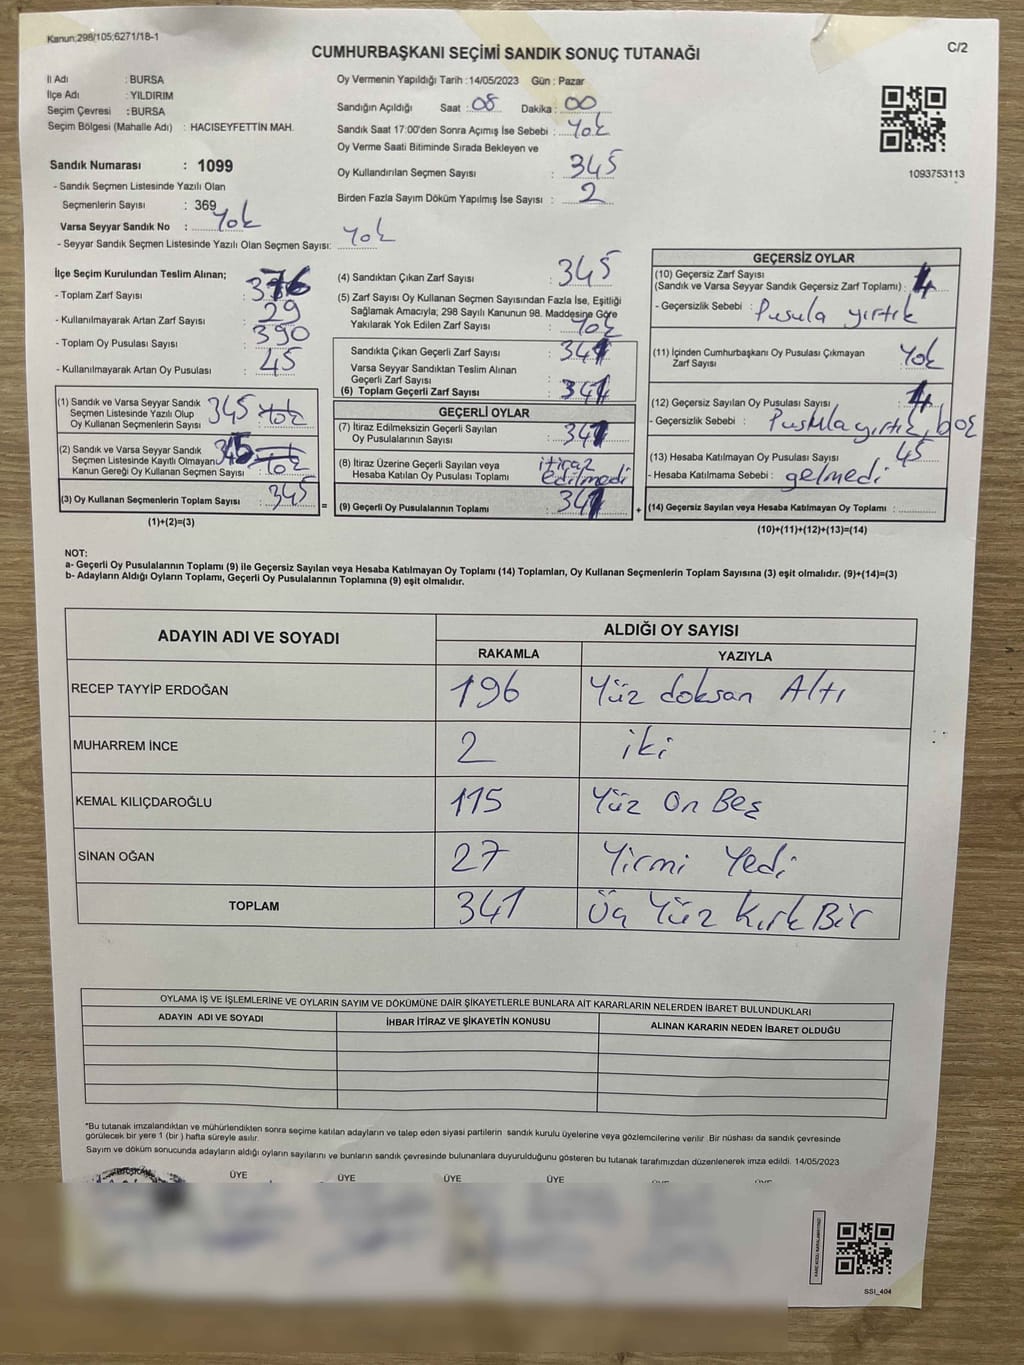 Kanun:298/105;6271/18-1
C/2
CUMHURBAŞKANI SEÇİMİ SANDIK SONUÇ TUTANAĞI
İl Adı : BURSA
İlçe Adı : YILDIRIM
Seçim Çevresi : BURSA
Seçim Bölgesi (Mahalle Adı) : HACISEYFETTİN MAH.
Sandık Numarası : 1099
- Sandık Seçmen Listesinde Yazılı Olan
Seçmenlerin Sayısı : 369
Varsa Seyyar Sandık No : Yok
- Seyyar Sandık Seçmen Listesinde Yazılı Olan Seçmen Sayısı: Yok
Oy Vermenin Yapıldığı Tarih :14/05/2023 Gün : Pazar
Sandığın Açıldığı Saat : 08 Dakika : 00
Sandık Saat 17:00'den Sonra Açımış İse Sebebi : Yok
Oy Verme Saati Bitiminde Sırada Bekleyen ve
Oy Kullandırılan Seçmen Sayısı : 345
Birden Fazla Sayım Döküm Yapılmış İse Sayısı : 2
1093753113
İlçe Seçim Kurulundan Teslim Alınan;
- Toplam Zarf Sayısı : 376
- Kullanılmayarak Artan Zarf Sayısı : 29
- Toplam Oy Pusulası Sayısı : 390
- Kullanılmayarak Artan Oy Pusulası : 45
(1) Sandık ve Varsa Seyyar Sandık
Seçmen Listesinde Yazılı Olup
Oy Kullanan Seçmenlerin Sayısı : 345
(2) Sandık ve Varsa Seyyar Sandık
Seçmen Listesinde Kayıtlı Olmayan
Kanun Gereği Oy Kullanan Seçmen Sayısı : Yok
(3) Oy Kullanan Seçmenlerin Toplam Sayısı : 345
(1)+(2)=(3)
(4) Sandıktan Çıkan Zarf Sayısı : 345
(5) Zarf Sayısı Oy Kullanan Seçmen Sayısından Fazla İse, Eşitliği
Sağlamak Amacıyla; 298 Sayılı Kanunun 98. Maddesine Göre
Yakılarak Yok Edilen Zarf Sayısı : Yok
Sandıkta Çıkan Geçerli Zarf Sayısı : 341
Varsa Seyyar Sandıktan Teslim Alınan
Geçerli Zarf Sayısı
(6) Toplam Geçerli Zarf Sayısı : 341
GEÇERLİ OYLAR
(7) İtiraz Edilmeksizin Geçerli Sayılan
Oy Pusulalarının Sayısı : 341
(8) İtiraz Üzerine Geçerli Sayılan veya
Hesaba Katılan Oy Pusulası Toplamı : itiraz edilmedi
= (9) Geçerli Oy Pusulalarının Toplamı : 341 +
GEÇERSİZ OYLAR
(10) Geçersiz Zarf Sayısı
(Sandık ve Varsa Seyyar Sandık Geçersiz Zarf Toplamı) : 4
- Geçersizlik Sebebi : Pusula yırtık
(11) İçinden Cumhurbaşkanı Oy Pusulası Çıkmayan
Zarf Sayısı : Yok
(12) Geçersiz Sayılan Oy Pusulası Sayısı : 4
- Geçersizlik Sebebi : Pusula yırtık, boş
(13) Hesaba Katılmayan Oy Pusulası Sayısı : 45
- Hesaba Katılmama Sebebi : gelmedi
(14) Geçersiz Sayılan veya Hesaba Katılmayan Oy Toplamı :
(10)+(11)+(12)+(13)=(14)
NOT:
a- Geçerli Oy Pusulalarının Toplamı (9) ile Geçersiz Sayılan veya Hesaba Katılmayan Oy Toplamı (14) Toplamları, Oy Kullanan Seçmenlerin Toplam Sayısına (3) eşit olmalıdır. (9)+(14)=(3)
b- Adayların Aldığı Oyların Toplamı, Geçerli Oy Pusulalarının Toplamına (9) eşit olmalıdır.
ADAYIN ADI VE SOYADI
ALDIĞI OY SAYISI
RAKAMLA YAZIYLA
RECEP TAYYİP ERDOĞAN 196 Yüz doksan Altı
MUHARREM İNCE 2 iki
KEMAL KILIÇDAROĞLU 115 Yüz On Beş
SİNAN OĞAN 27 Yirmi Yedi
TOPLAM 341 Üç Yüz Kırk Bir
OYLAMA İŞ VE İŞLEMLERİNE VE OYLARIN SAYIM VE DÖKÜMÜNE DAİR ŞİKAYETLERLE BUNLARA AİT KARARLARIN NELERDEN İBARET BULUNDUKLARI
ADAYIN ADI VE SOYADI İHBAR İTİRAZ VE ŞİKAYETİN KONUSU ALINAN KARARIN NEDEN İBARET OLDUĞU
*Bu tutanak imzalandıktan ve mühürlendikten sonra seçime katılan adayların ve talep eden siyasi partilerin sandık kurulu üyelerine veya gözlemcilerine verilir. Bir nüshası da sandık çevresinde
görülecek bir yere 1 (bir ) hafta süreyle asılır.
Sayım ve döküm sonucunda adayların aldığı oyların sayılarını ve bunların sandık çevresinde bulunanlara duyurulduğunu gösteren bu tutanak tarafımızdan düzenlenerek imza edildi. 14/05/2023
ÜYE ÜYE ÜYE ÜYE
SSI_404